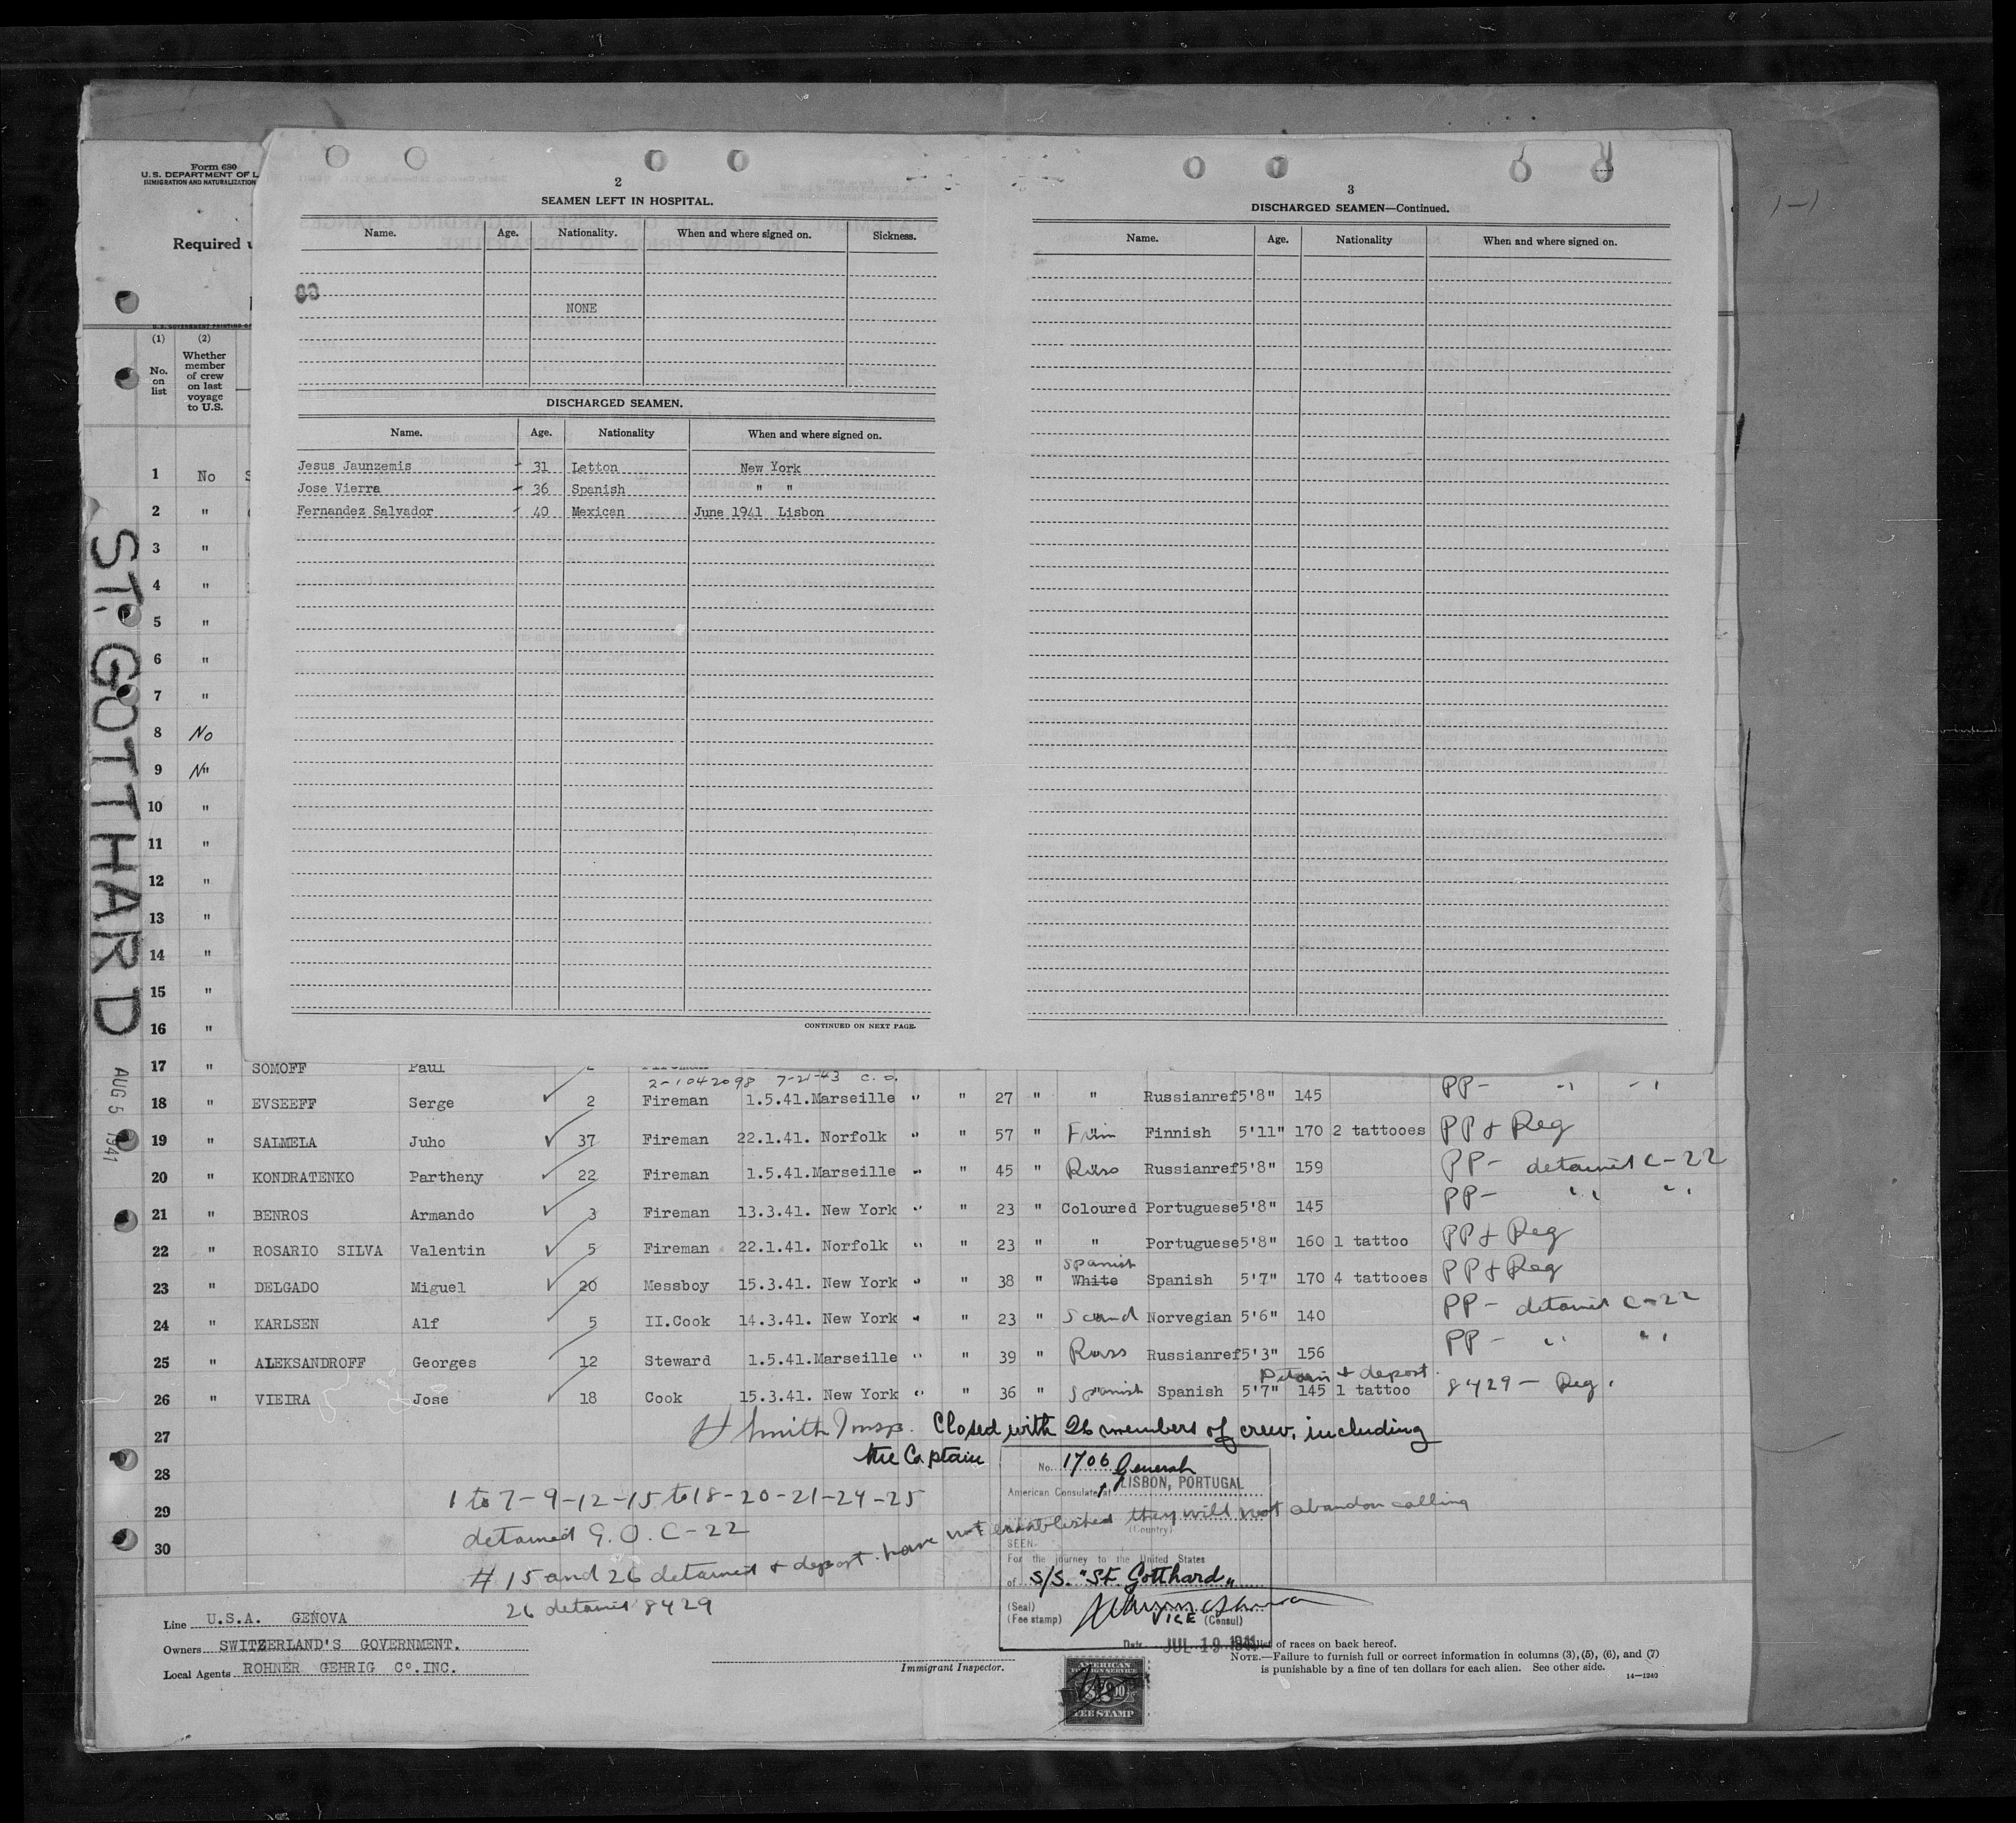 Form 680
U.S. DEPARTMENT OF L
IMMIGRATION AND NATURALIZATION
Required
2
SEAMEN LEFT IN HOSPITAL.
Name. Age. Nationality. When and where signed on. Sickness.
NONE
DISCHARGED SEAMEN.
Name. Age. Nationality When and where signed on.
Jesus Jaunzemis - 31 Letton New York
Jose Vierra - 36 Spanish " "
Fernandez Salvador - 40 Mexican June 1941 Lisbon
CONTINUED ON NEXT PAGE.
3
DISCHARGED SEAMEN—Continued.
Name. Age. Nationality When and where signed on.
(1) (2)
No. on list
Whether member of crew on last voyage to U.S.
1 No S
2 "
3 "
4 "
5 "
6 "
7 "
8 No
9 N"
10 "
11 "
12 "
13 "
14 "
15 "
16 "
ST. GOTTHARD
AUG 5 1941
17 " SOMOFF Paul
2-1042098 7-21-43 C.O.
18 " EVSEEFF Serge 2 Fireman 1.5.41.Marseille " " 27 " " Russianref 5'8" 145 PP- " "
19 " SALMELA Juho 37 Fireman 22.1.41. Norfolk " " 57 " Finn Finnish 5'11" 170 2 tattooes PP & Reg
20 " KONDRATENKO Partheny 22 Fireman 1.5.41.Marseille " " 45 " Russ Russianref 5'8" 159 PP- detained C-22
21 " BENROS Armando 3 Fireman 13.3.41. New York " " 23 " Coloured Portuguese 5'8" 145 PP- " "
22 " ROSARIO SILVA Valentin 5 Fireman 22.1.41. Norfolk " " 23 " " Portuguese 5'8" 160 1 tattoo PP & Reg
23 " DELGADO Miguel 20 Messboy 15.3.41. New York " " 38 " White Spanish Spanish 5'7" 170 4 tattooes PP & Reg
24 " KARLSEN Alf 5 II.Cook 14.3.41. New York " " 23 " Scand Norvegian 5'6" 140 PP- detained C-22
25 " ALEKSANDROFF Georges 12 Steward 1.5.41.Marseille " " 39 " Russ Russianref 5'3" 156 PP- " "
Detain & deport.
26 " VIEIRA Jose 18 Cook 15.3.41. New York " " 36 " Spanish Spanish 5'7" 145 1 tattoo 8429 - Reg.
27
28
29
30
H Smith Insp. Closed with 26 members of crew, including
the Captain
1 to 7-9-12-15 to 18-20-21-24-25
detained G.O. C-22
# 15 and 26 detained & deport. have not established they will not abandon calling
26 detained 8429
No. 1706
American Consulate General at LISBON, PORTUGAL
(Country)
SEEN-
For the journey to the United States
of S/S. "St. Gotthard"
(Seal)
(Fee stamp) VICE (Consul)
Date JUL 19 1941
AMERICAN FOREIGN SERVICE
FEE STAMP
Line U.S.A. GENOVA
Owners SWITZERLAND'S GOVERNMENT.
Local Agents ROHNER GEHRIG Co. INC.
Immigrant Inspector.
list of races on back hereof.
NOTE.—Failure to furnish full or correct information in columns (3), (5), (6), and (7)
is punishable by a fine of ten dollars for each alien. See other side.
14—1240